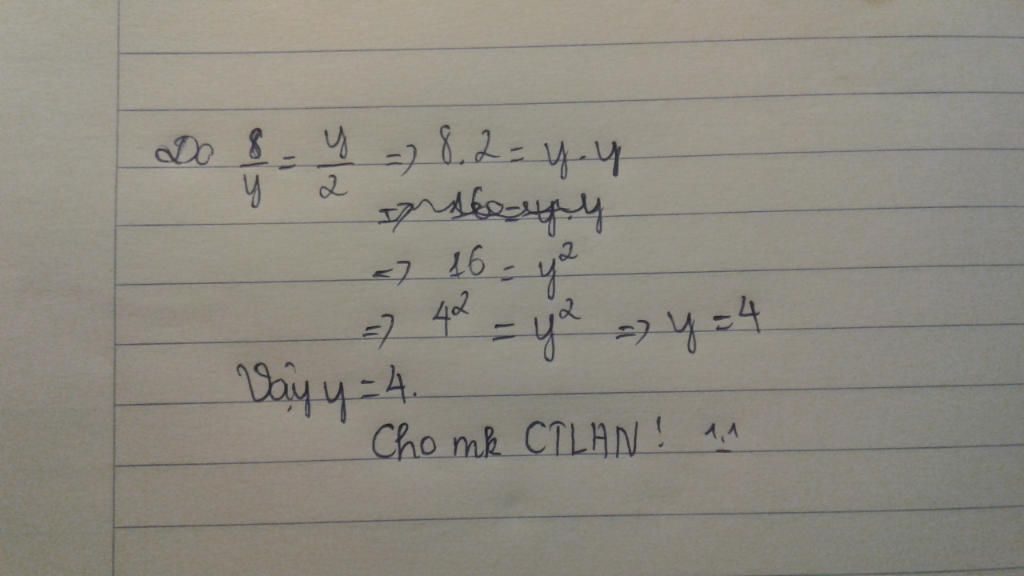 Do 8/y = y/2 => 8.2 = y.y
=> 16 = y.y
=> 16 = y²
=> 4² = y² => y = 4
Vậy y = 4.
Cho mk CTLHN! ^.^